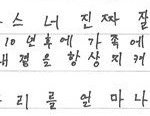 스 너 진짜 잘
10 년후에 가족에
내 곁을 항상 지켜
리 를 얼 마 나